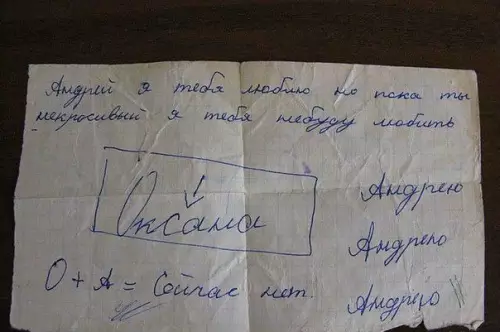 Андрей я тебя люблю но пока ты
некрасивый я тебя небуду любить
Андрею
Оксана
Андрею
О + А = Сейчас нет.
Андрею